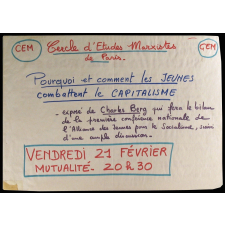 CEM Cercle d'Etudes Marxistes GEM
de Paris.
Pourquoi et comment les JEUNES
combattent le CAPITALISME
- exposé de Charles Berg qui fera le bilan
de la première conférence nationale de
l'Alliance des Jeunes pour le Socialisme, suivi
d'une ample discussion -
VENDREDI 21 FÉVRIER
MUTUALITÉ - 20h30